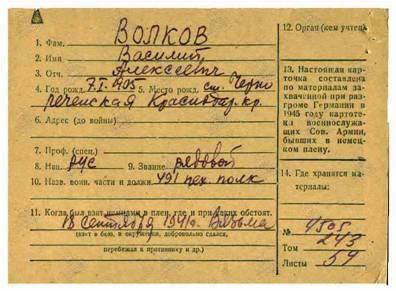 1. Фам. ВОЛКОВ
2. Имя Василий
3. Отч. Алексеевич
4. Год рожд. 7.I.1905 5. Место рожд. ст. Черно
реченская Краснодар. кр.
6. Адрес (до войны)
7. Проф. (спец.)
8. Нац. рус 9. Звание рядовой
10. Назв. воин. части и должн. 491 пех. полк
11. Когда был взят немцами в плен, где и при каких обстоят.
18 сентября 1941г. Вязьма
(взят в бою, в окружении, добровольно сдался,
перебежал к противнику и др.)
12. Орган (кем учтен)
13. Настоящая кар-
точка составлена
по материалам за-
хваченной при раз-
громе Германии в
1945 году картоте-
ки военнослужа-
щих Сов. Армии,
бывших в немец-
ком плену.
14. Где хранятся ма-
териалы:
№ 4505
Том 243
Листы 54